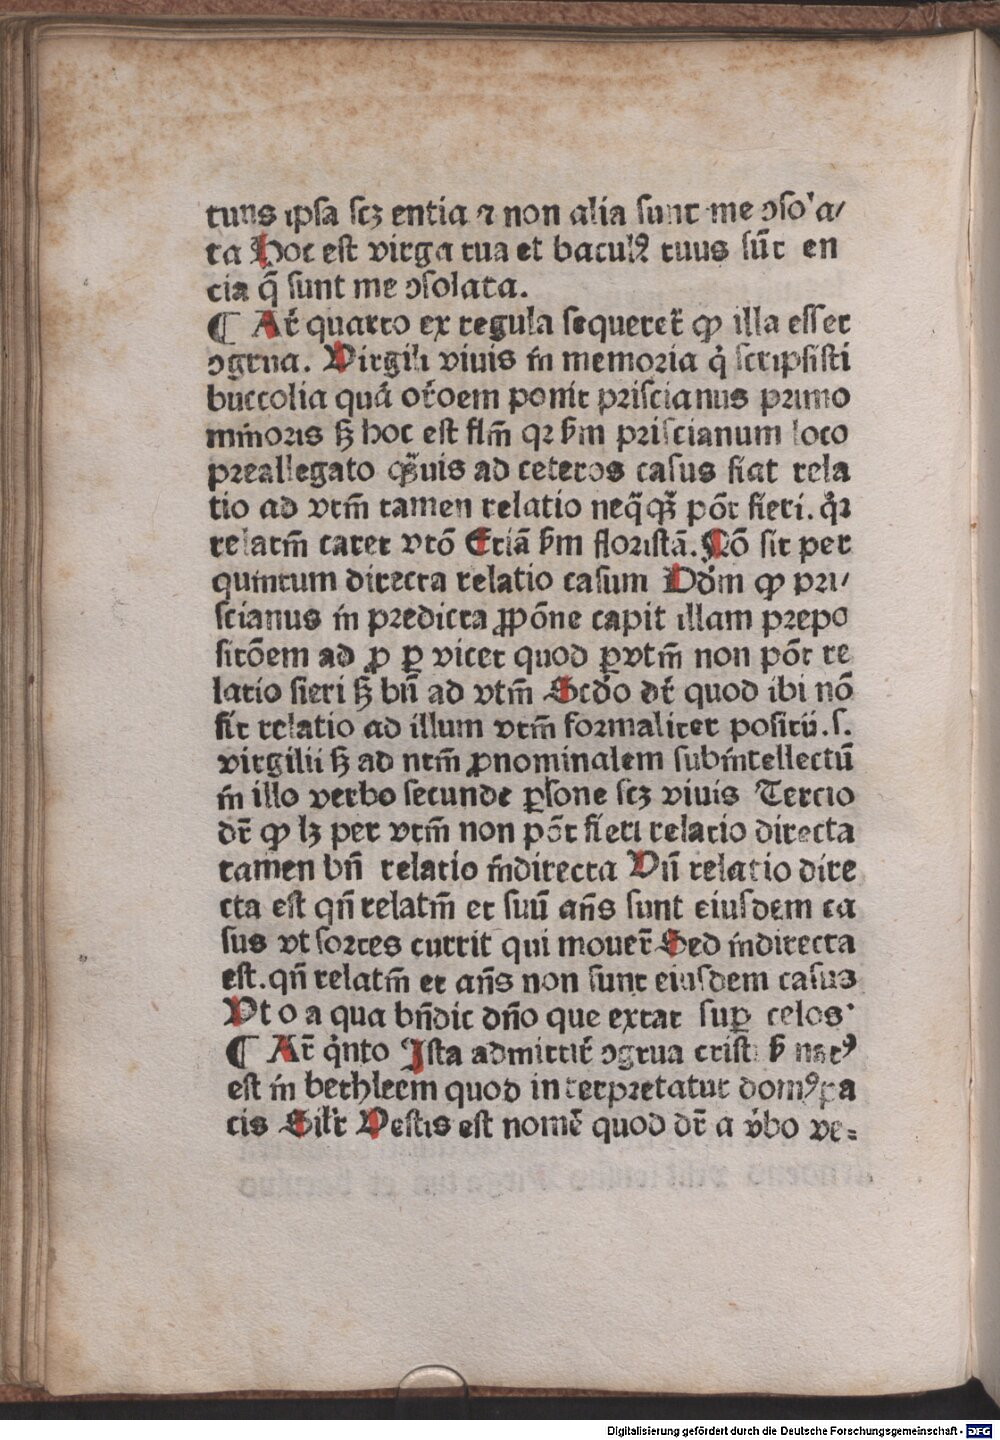 tuus ipsa scꝫ entia ⁊ non alia sunt me ɔsola/
ta Hoc est virga tua et baculꝰ tuus sūt en
cia q̄ sunt me ɔsolata.
¶ Ar̄ quarto ex regula sequeret̄ ꝙ illa esset
ɔgrua. Virgili viuis in memoria qͥ scripsisti
buccolia quā or̄oem ponit priscianus primo
minoris sꝫ hoc est flm̄ qꝛ ẜm priscianum loco
preallegato qͣuis ad ceteros casus fiat rela
tio ad vtm̄ tamen relatio neq̄qͣꝫ pōt fieri. qͥꝛ
relatm̄ caret vtō Eciā ẜm floristā. Nō sit per
quintum directa relatio casum Dd̓m ꝙ pri/
scianus in predicta ꝓpōne capit illam prepo
sitōem ad ꝓ ꝑ vicet quod ꝑ vtm̄ non pōt re
latio fieri sꝫ bn̄ ad vtm̄ Scd̓o dr̄ quod ibi nō
fit relatio ad illum vtm̄ formaliter positū .s.
virgilii sꝫ ad ntm̄ ꝓnominalem subintellectū
in illo verbo secunde ꝑsone scꝫ viuis Tercio
dr̄ ꝙ lꝫ per vtm̄ non pōt fieri relatio directa
tamen bn̄ relatio indirecta Vn̄ relatio dire
cta est qn̄ relatm̄ et suū an̄s sunt eiusdem ca
sus vt sortes currit qui mouet̄ Sed indirecta
est. qn̄ relatm̄ et an̄s non sunt eiusdem casus
Vt o a qua bn̄dic dn̄o que extat suꝑ celos
¶ Ar̄ qͥnto Ista admittit̄ ɔgrua cristꝰ ẜ natꝰ
est in bethleem quod interpretatur domꝰ pa
cis Silꝛ Vestis est nomē quod dr̄ a v̓bo ve=
Digitalisierung gefördert durch die Deutsche Forschungsgemeinschaft - DFG